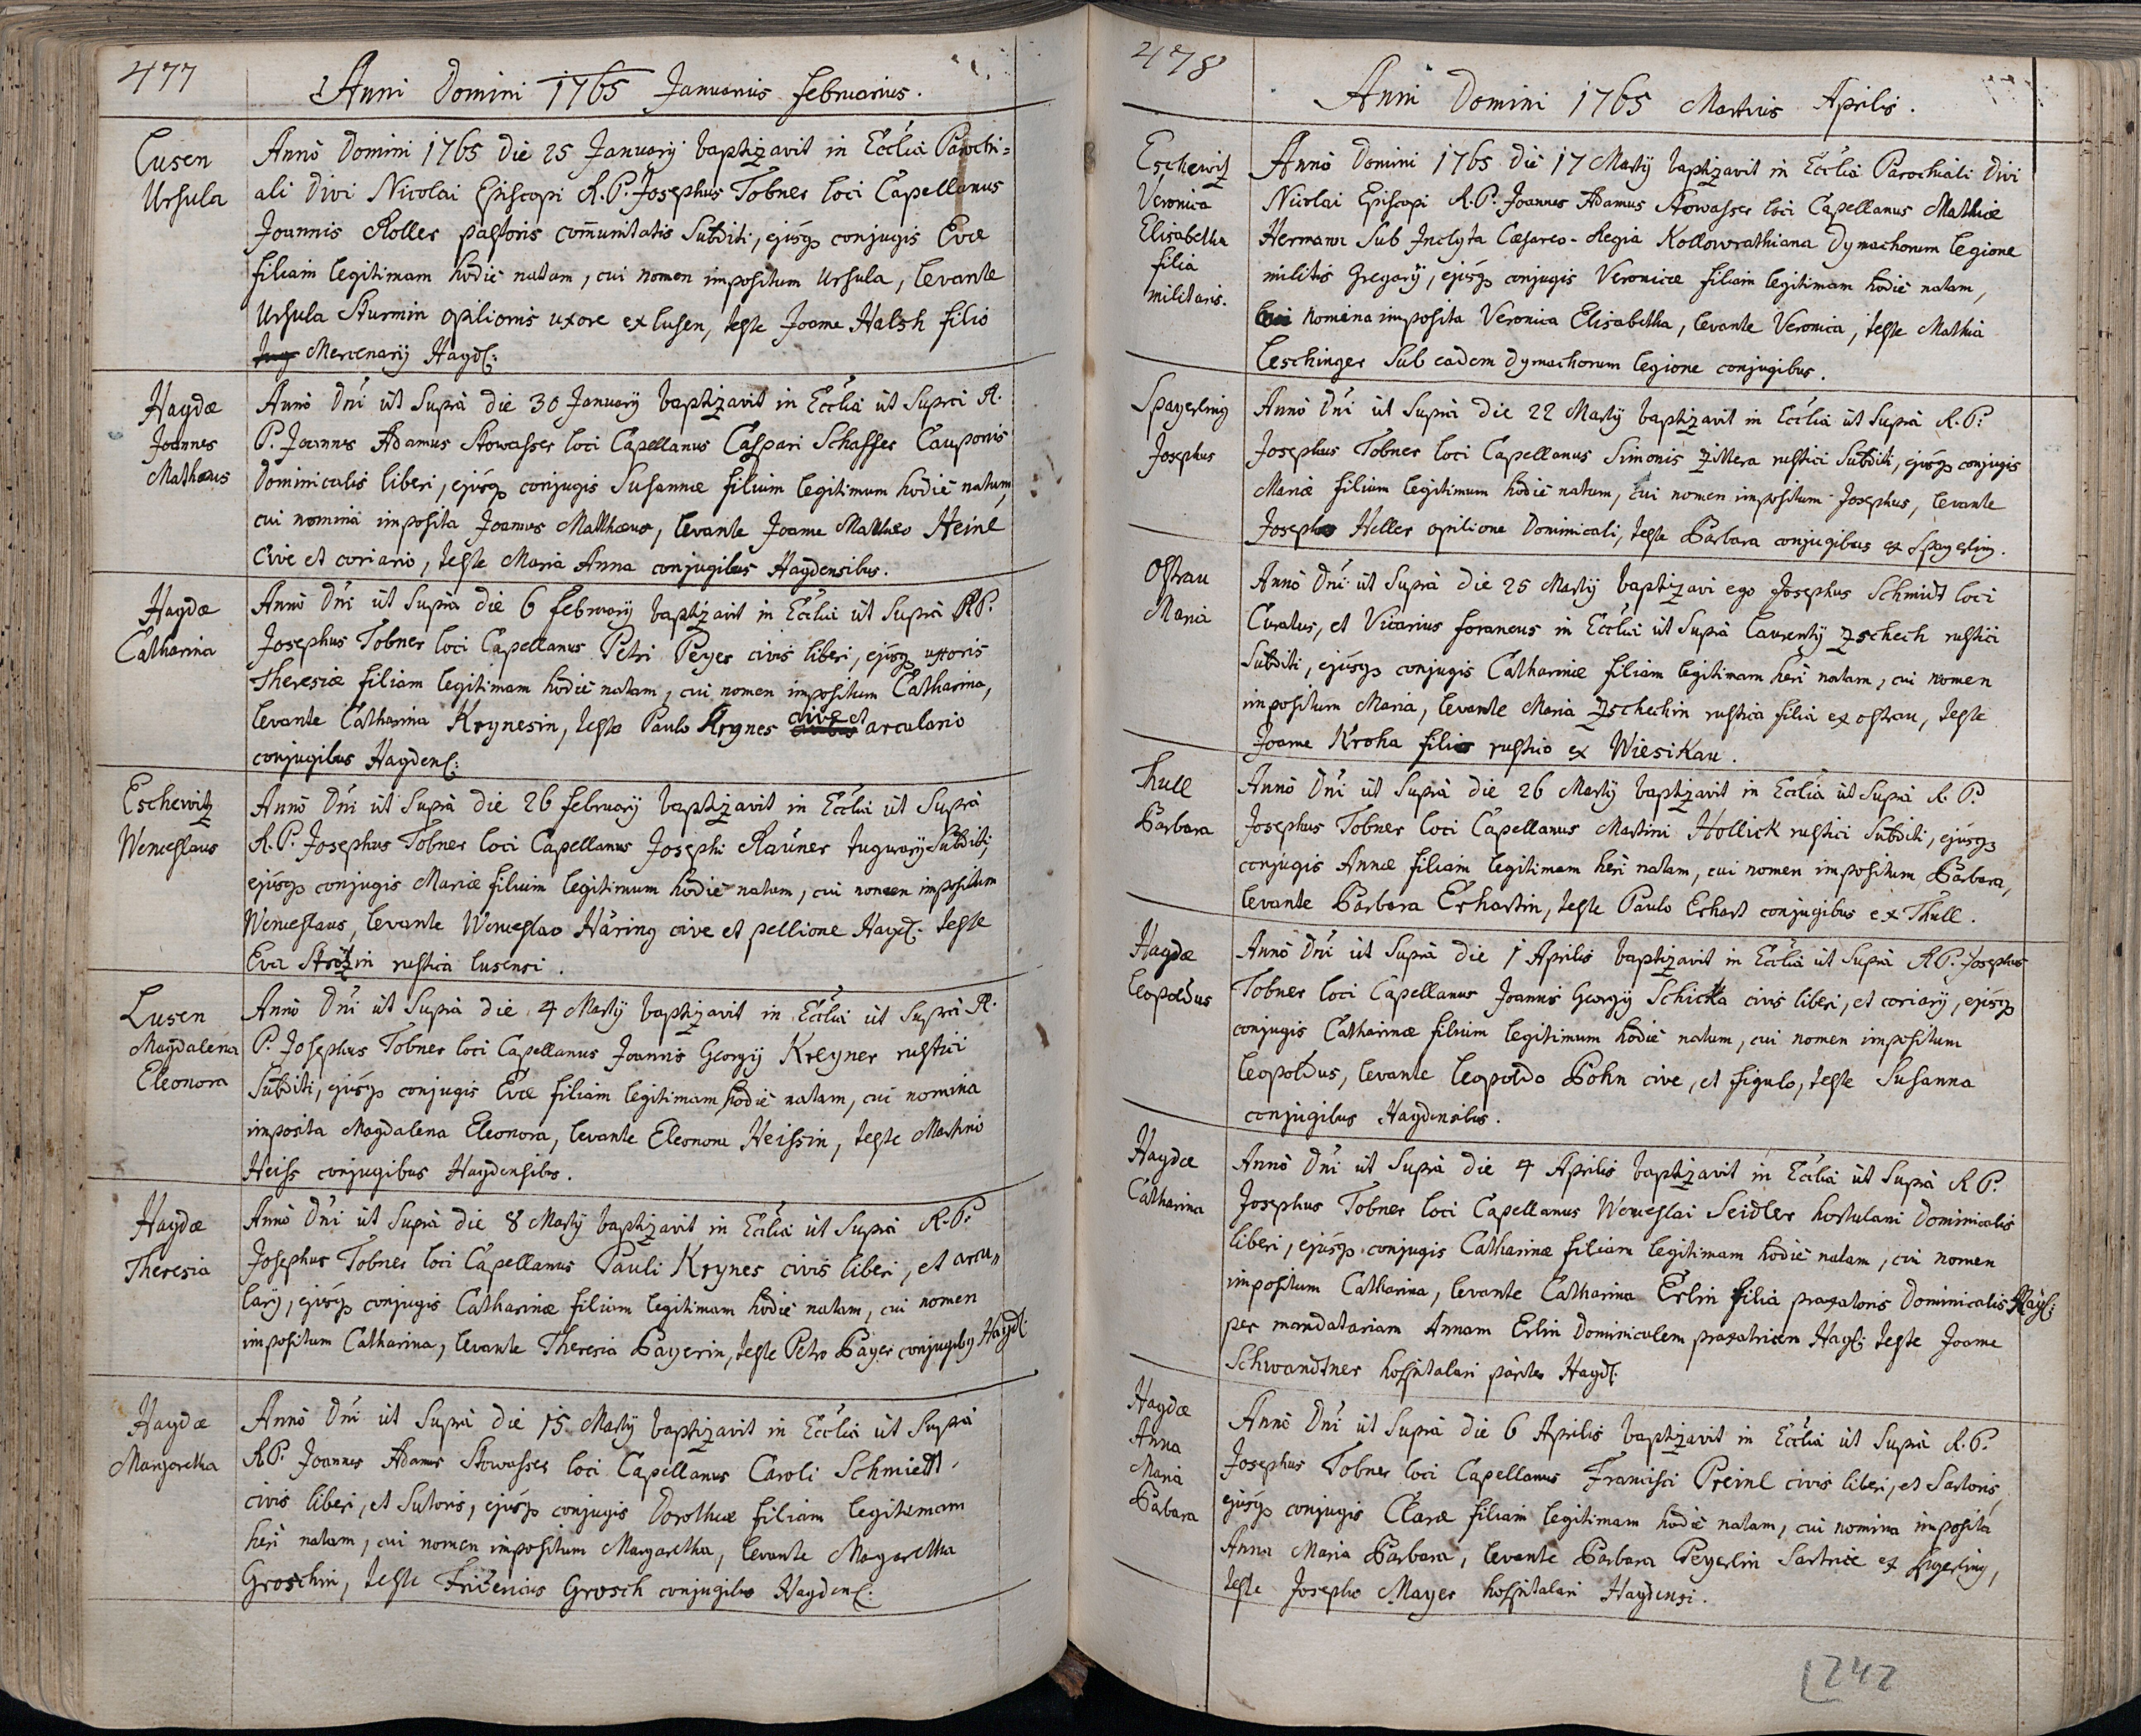 477
Anni Domini 1765 Januarius Februarius.
Lusen
Ursula
Annô Domini 1765 die 25 January baptizavit in Eccliâ Parochi=
ali Divi Nicolai Episcopi R. P. Josephus Tobner loci Capellanus
Joannis Roller pastoris com̄unitatis Subditi, ejusq conjugis Evæ
filiam legitimam hodiè natam, cui nomen impositum Ursula, levante
Ursula Sturmin opilionis uxore ex Lusen, teste Joanne Halsh filiô
Mercenarij Haydę:
Haydæ
Joannes
Mathæus
Annô Dni ut Suprà die 30 January baptizavit in Eccliâ ut Suprà R.
P. Joannes Adamus Stowasser loci Capellanus Caspari Schaffer Cauponis
Dominicalis liberi, ejusq conjugis Susannæ filium legitimum hodiè natum,
cui nomina imposita Joannes Matthæus, levante Joanne Mathæo Heinl
Cive et coriario, teste Maria Anna conjugibus Haydensibus.
Haydæ
Catharina
Annô Dni ut Suprà die 6 february baptizavit in Eccliâ ut Suprà R P.
Josephus Tobner loci Capellanus Petri Peyer civis liberi, ejusq uxoris
Theresiæ filiam legitimam hodiè natam, cui nomen impositum Catharina,
levante Catharina Krynesin, teste Paulo Krynes cive et arculario
conjugibus Haydens:
Eschewitz
Wenceslaus
Annô Dni ut Suprà die 26 february baptizavit in Eccliâ ut Suprà
R. P. Josephus Tobner loci Capellanus Josephi Rauner tugurarij Subditi,
ejusq conjugis Mariæ filium legitimum hodiè natum, cui nomen impositum
Wenceslaus, levante Wenceslao Häring cive et pellione Hayd: teste
Eva rustica lusensi.
Lusen
Magdalena
Eleonora
Annô Dni ut Suprà die 4 Martij baptizavit in Eccliâ ut Suprà R.
P. Josephus Tobner loci Capellanus Joannis Georgij Kreyner rustici
Subditi, ejusq conjugis Evæ filiam legitimam hodiè natam, cui nomina
imposita Magdalena Eleonora, levante Eleonora Heissin, teste Martino
Heiss conjugibus Haydensibus.
Haydæ
Theresia
Annô Dni ut Suprà die 8 Martij baptizavit in Eccliâ ut Suprà R. P.
Josephus Tobner loci Capellanus Pauli Krynes civis liberi, et arcu„
larij, ejusq conjugis Catharinæ filiam legitimam hodiè natam, cui nomen
impositum Catharina, levante Theresia Bayerin, teste Petro Bayer conjugibq Hayd:
Haydæ
Margaretha
Annô Dni ut Suprà die 15 Martij baptizavit in Eccliâ ut Suprà
R P. Joannes Adamus Stowasser loci Capellanus Caroli Schmiedt
civis liberi, et Sutoris, ejusq conjugis Dorotheæ filiam legitimam
heri natam, cui nomen impositum Margaretha, levante Margaretha
Groschin, teste Grosch conjugibus Haydens:
478
Anni Domini 1765 Martius Aprilis.
Eschewitz
Veronica
Elisabetha
filia
militaris.
Annô Domini 1765 die 17 Martij baptizavit in Eccliâ Parochiali Divi
Nicolai Episcopi R. P. Joannes Adamus Stowasser loci Capellanus Mathiæ
Hermann Sub Inclyta Cæsareo-Regia Kollowrathiana Dymachorum legione
militis Gregarij, ejusq conjugis Veronicæ filiam legitimam hodiè natam,
cui nomina imposita Veronica Elisabetha, levante Veronica, teste Mathia
Leschinger Sub eadem dymachorum legione conjugibus.
Spayerling
Josephus
Annô Dni ut Suprà die 22 Martij baptizavit in Eccliâ ut Suprà R. P.
Josephus Tobner loci Capellanus Simonis Zittera rustici Subditi, ejusq conjugis
Mariæ filium legitimum hodiè natum, cui nomen impositum Josephus, levante
Josepho Heller opilione Dominicali, teste Barbara conjugibus ex Spayerling.
Ostrau
Maria
Annô Dni ut Suprà die 25 Martij baptizavi ego Josephus Schmidt loci
Curatus, et Vicarius foraneus in Eccliâ ut Suprà Laurentij Zschech rustici
Subditi, ejusq conjugis Catharinæ filiam legitimam heri natam, cui nomen
impositum Maria, levante Maria Zschechin rustica filia ex ostrau, teste
Joanne Kroha filio rustico ex Wiesikau.
Thull
Barbara
Annô Dni ut Suprà die 26 Martij baptizavit in Eccliâ ut Suprà R. P.
Josephus Tobner loci Capellanus Martini Hollick rustici Subditi, ejusq
conjugis Annæ filiam legitimam heri natam, cui nomen impositum Barbara,
levante Barbara Erhartin, teste Paulo Erhart conjugibus ex Thull.
Haydæ
Leopoldus
Annô Dni ut Suprà die 1 Aprilis baptizavit in Eccliâ ut Suprà R P. Josephus
Tobner loci Capellanus Joannis Georgij Schicka civis liberi, et coriarij, ejusq
conjugis Catharinæ filium legitimum hodiè natum, cui nomen impositum
Leopoldus, levante Leopoldo Böhn cive, et figulo, teste Susanna
conjugibus Haydensibus.
Haydæ
Catharina
Annô Dni ut Suprà die 4 Aprilis baptizavit in Eccliâ ut Suprà R P.
Josephus Tobner loci Capellanus Wenceslai Seidler hortulani Dominicalis
liberi, ejusq conjugis Catharinæ filiam legitimam hodiè natam, cui nomen
impositum Catharina, levante Catharina Erlin filia praxatoris Dominicalis Hayd:
per mandatariam Annam Erlin Dominicalem praxatricem Hayd: teste Joanne
Schwandtner hospitalari pariter Hayd:
Haydæ
Anna
Maria
Barbara
Annô Dni ut Suprà die 6 Aprilis baptizavit in Eccliâ ut Suprà R. P.
Josephus Tobner loci Capellanus Francisci Preinl civis liberi, et Sartoris,
ejusq conjugis Claræ filiam legitimam hodiè natam, cui nomina imposita
Anna Maria Barbara, levante Barbara Peyerlin Sartrice ex Spyerling,
teste Josepho Mayer hospitalari Haydensi.
242